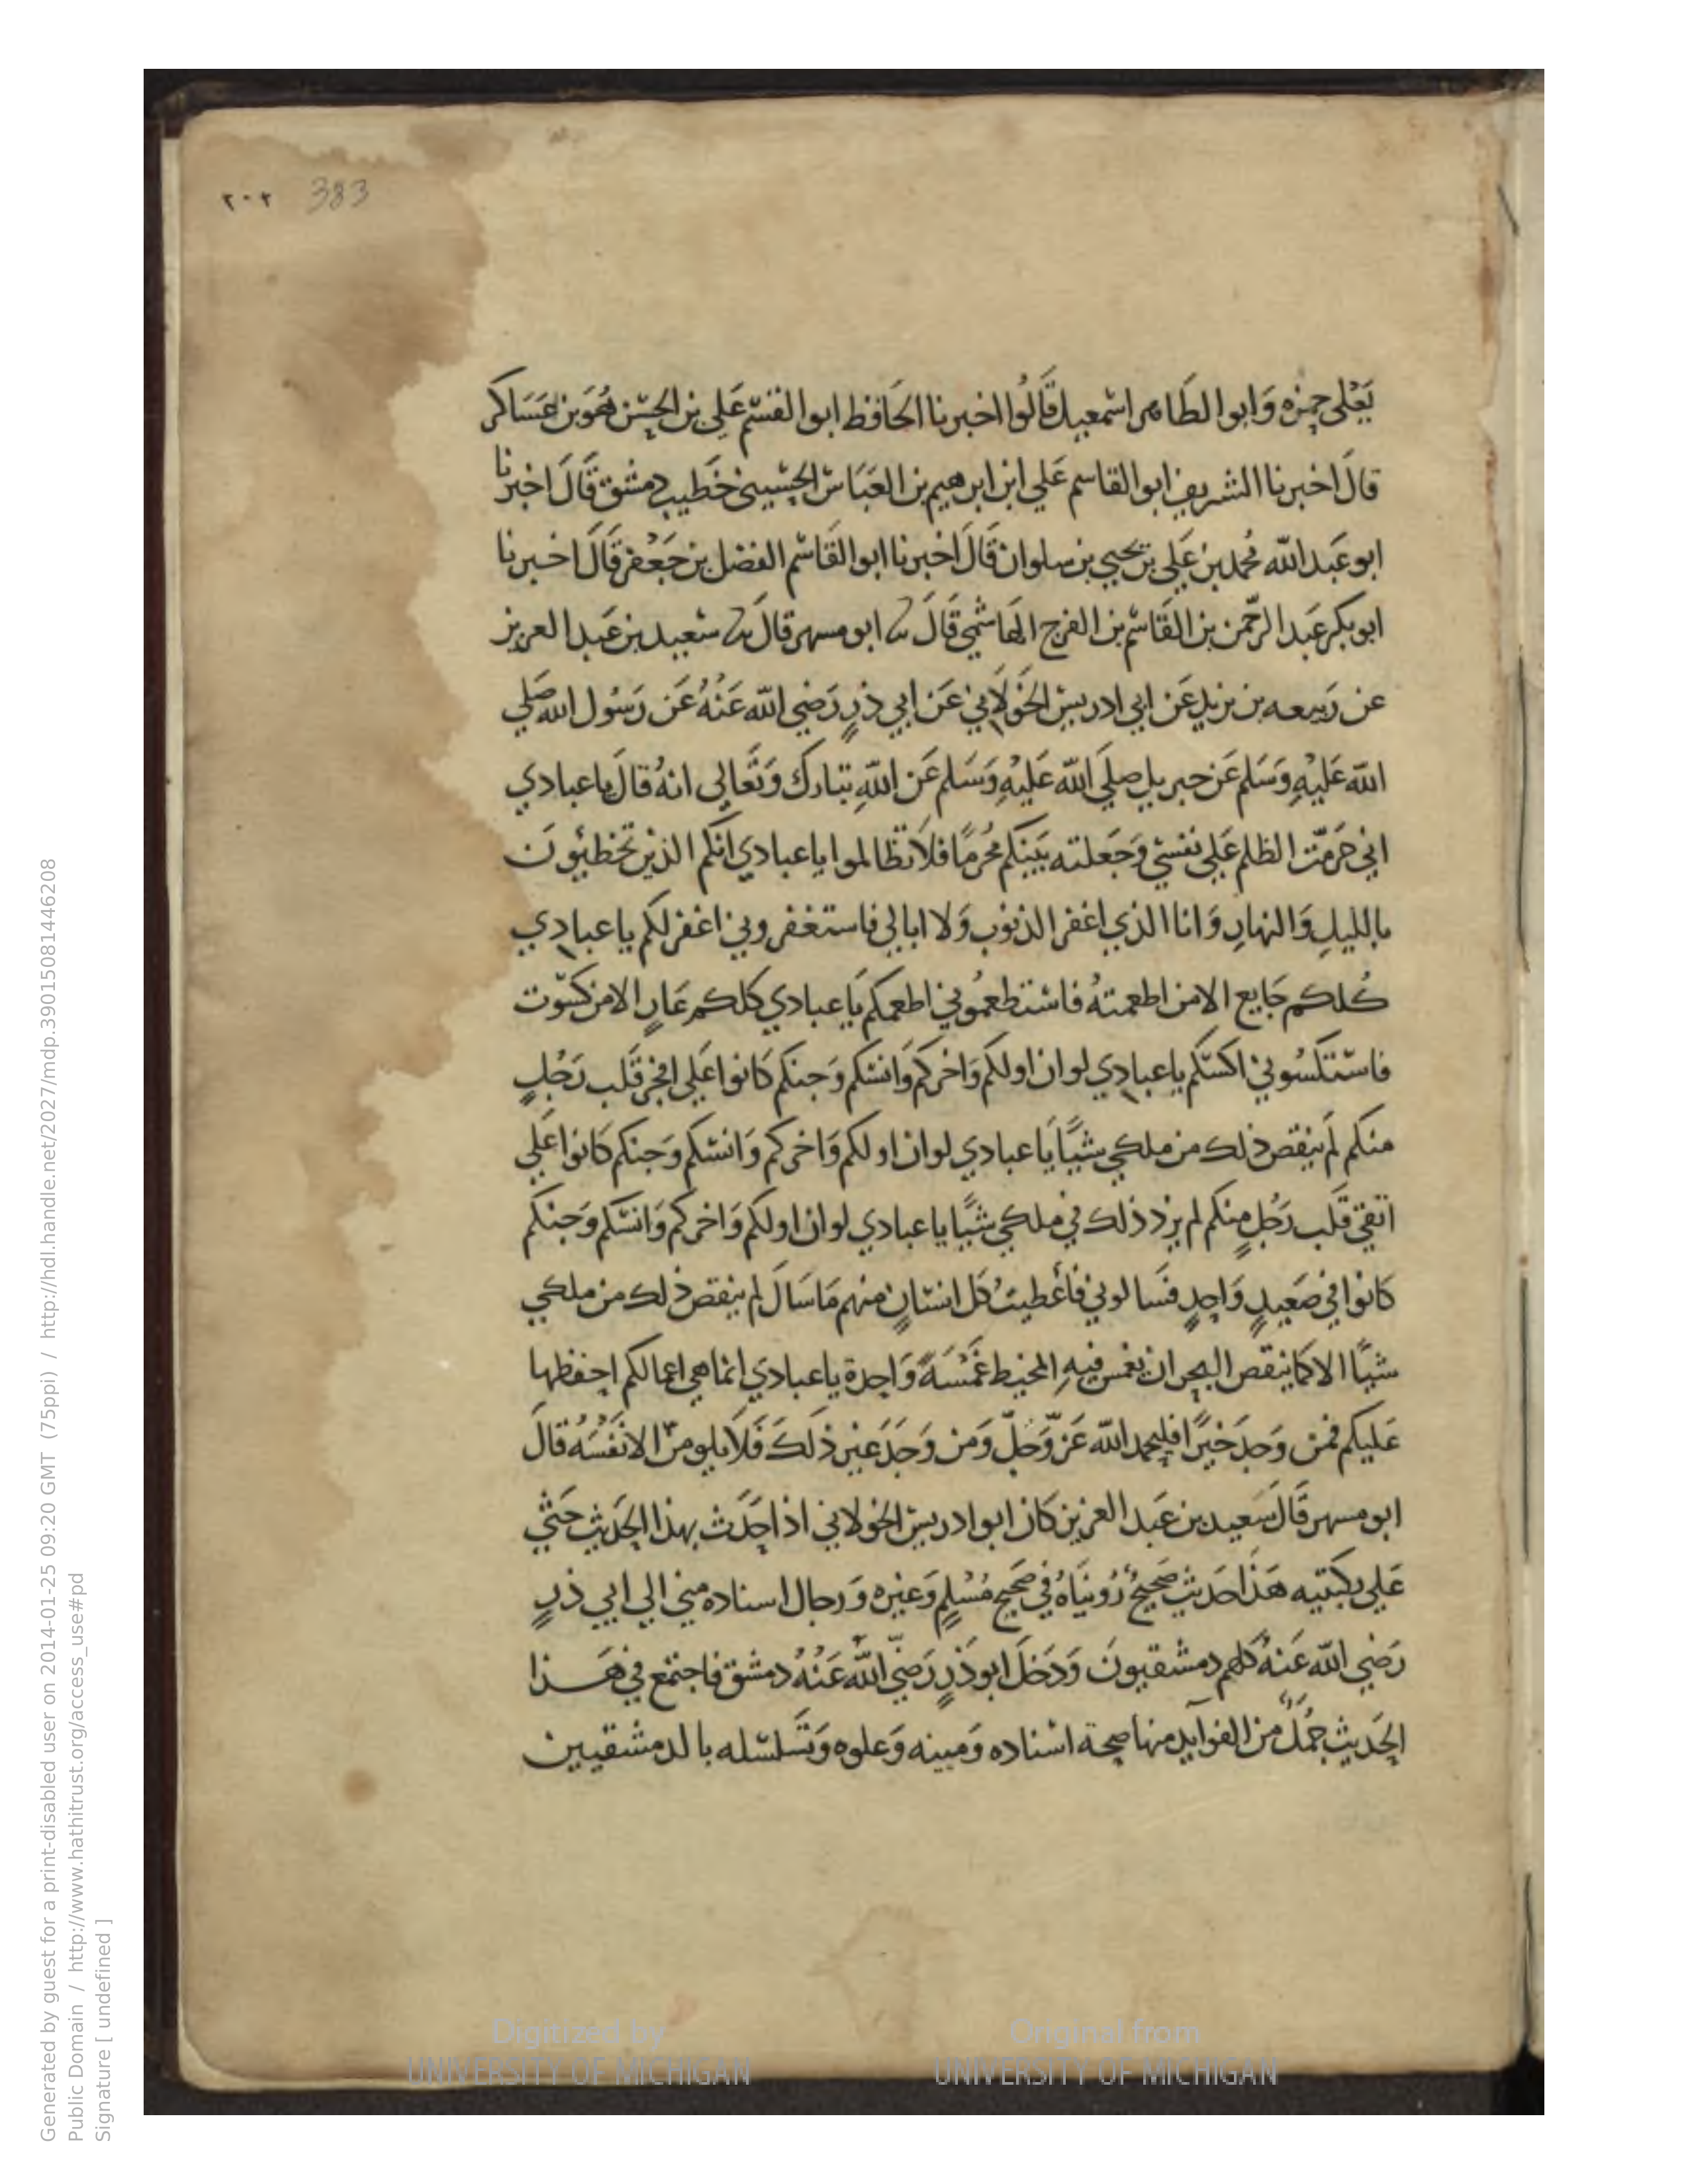 ٢٠٢ 383
يَعْلى حمزه وَابوا لطَاهر اسْمعيل قَالُوا اخبرنا الحَافظ ابوا لقسم عَلي بن الحسَن هُوَ بن عَسَاكر
قالَ اخبرنا الشريف ابوالقاسم عَلي ابن ابرهيم بن العَبَاس الحسَيني خَطيب دمشق قَالَ اخبرنا
ابو عَبد الله محمد بن عَلي بن يحيي بن سلوان قَالَ اخبرنا ابوا لقَاسم الفضل بن جَعْفر قَالَ اخبرنا
ابو بكر عَبد الرحّمن بن القَاسم بن الفرج الهَاشمي قَالَ ثنا ابو مسهر قال ثنا سَعيد بن عَبد العزيز
عن رَبيعه بن يزيد عَن ابي ادريس الخَولَاني عَن ابي ذرٍ رَضي الله عَنْهُ عَن رَسُول الله صَلي
الله عَليْهِ وَسَلم عَن جبريل صلي الله عَليْهِ وَسَلم عَن اللهِ تبَارك وَتَعَالي انهُ قالَ يا عبادي
اني حَرمّت الظلم عَلي نفسْي وَجَعلته بَينَكم محُرمًا فلاَ تظالموا يا عبادي انكم الذين تخطيؤن
بالليلِ وَالنهارِ وَانا الذي اغفر الذنوب وَلا ابالي فاستغفروني اغفر لكم يا عبادي
كُلكم جَايع الا من اطعمتهُ فاسْتطعمُوني اطعمكم يَا عبادي كلكم عَارٍ الا من كسَوت
فاسْتكسُوني اكسكم يا عبادي لو ان اولكم وَاخركم وَانسكم وَجنكم كَانوا عَلي افجر قَلب رَجُلٍ
منكم لم ينقص ذلك من ملكي شيًا يَا عبادي لو ان اولكم وَاخركم وَانسكم وَجنكم كَانوا عَلي
اتقي قَلب رَجُلٍ منكم لم يزد ذلك في ملكي شيًا يا عبادي لو ان اولكم وَاخركم وَانسكم وَجنكم
كَانوا في صَعيدٍ وَاحدٍ فسَالوني فأعْطيت كل انسَانٍ منهم مَا سَالَ لم ينقص ذلك من ملكي
شيًا الا كما ينقص البحر ان يغمس فيهِ المخيط غَمْسَةً وَاحدة يا عبادي انما هي اعمالكم احفظها
عَليكم فمن وَجدَ خيرًا فليحمد الله عَزّ وَجلّ وَمن وَجَدَ غير ذلكَ فَلاَ يلومنّ الا نَفْسُه قالَ
ابو مسهر قَالَ سَعيد بن عَبد العزيز كَان ابوا دريس الخولاني اذا حَدَث بهذا الحَديث جَثي
عَلي ركبتيه هَذا حَديث صَحيحٌ رُوينَاهُ في صَحيح مُسْلمٍ وَغيره وَرجال اسناده مني الي ابي ذرٍ
رَضي الله عَنهُ كلهم دمشقيونَ وَدَخلَ ابو ذَرٍ رَضيّ الله عَنْهُ دمشق فاجتمع في هَـذا
الحَديث جُمَلٌ من الفوايد منها صحة اسْناده وَمتنه وَعلوه وَتَسلسُله بالدمشقيين
Generated by guest for a print-disabled user on 2014-01-25 09:20 GMT (75ppi) / http://hdl.handle.net/2027/mdp.39015081446208
Public Domain / http://www.hathitrust.org/access_use#pd
Signature [ undefined ]
Digitized by
UNIVERSITY OF MICHIGAN
Original from
UNIVERSITY OF MICHIGAN